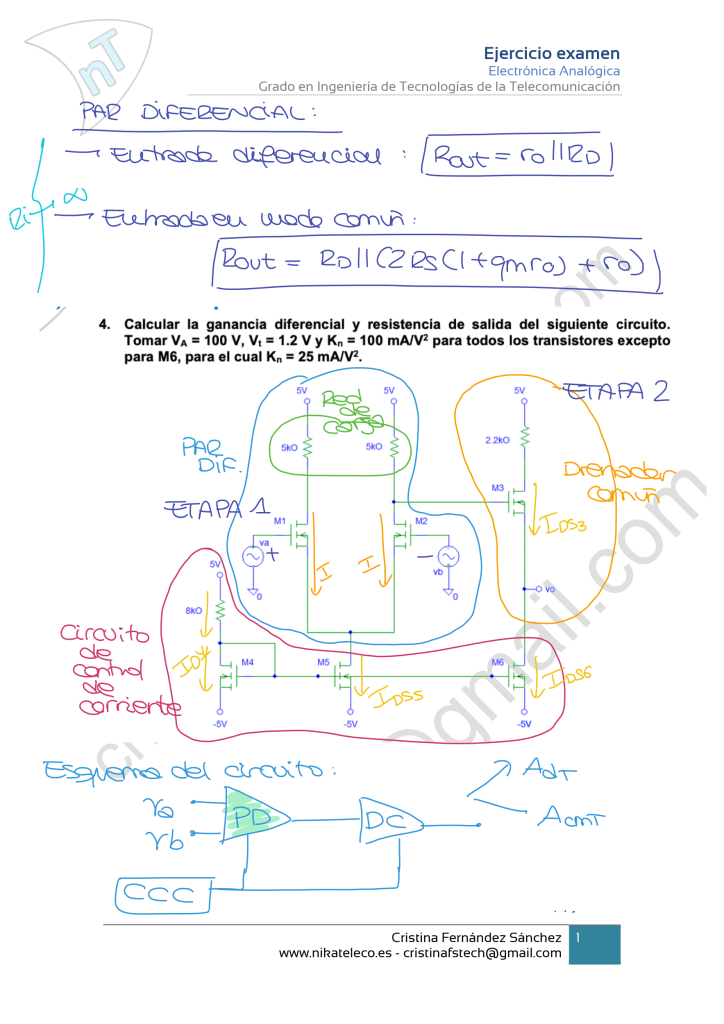 nT
Ejercicio examen
Electrónica Analógica
Grado en Ingeniería de Tecnologías de la Telecomunicación
PAR DIFERENCIAL:
→ Entrada diferencial : Rout = ro||RD
Ri → ∞
→ Entrada en modo común:
Rout = RD||(2RS(1+gmro)+ro)
4. Calcular la ganancia diferencial y resistencia de salida del siguiente circuito.
Tomar VA = 100 V, Vt = 1.2 V y Kn = 100 mA/V² para todos los transistores excepto
para M6, para el cual Kn = 25 mA/V².
5V 5V 5V
ETAPA 2
Red de carga
PAR DIF.
5kO 5kO 2.2kO
Drenador común
ETAPA 1
M1 M2 M3
va + I I - vb
IDS3
0 0
vo
5V
8kO
Circuito de control de corriente
ID4
M4 M5 M6
IDS5 IDS6
-5V -5V -5V
@gmail.com
Esquema del circuito:
AdT
va
PD DC
AcmT
vb
CCC
...
Cristina Fernández Sánchez 1
www.nikateleco.es - cristinafstech@gmail.com